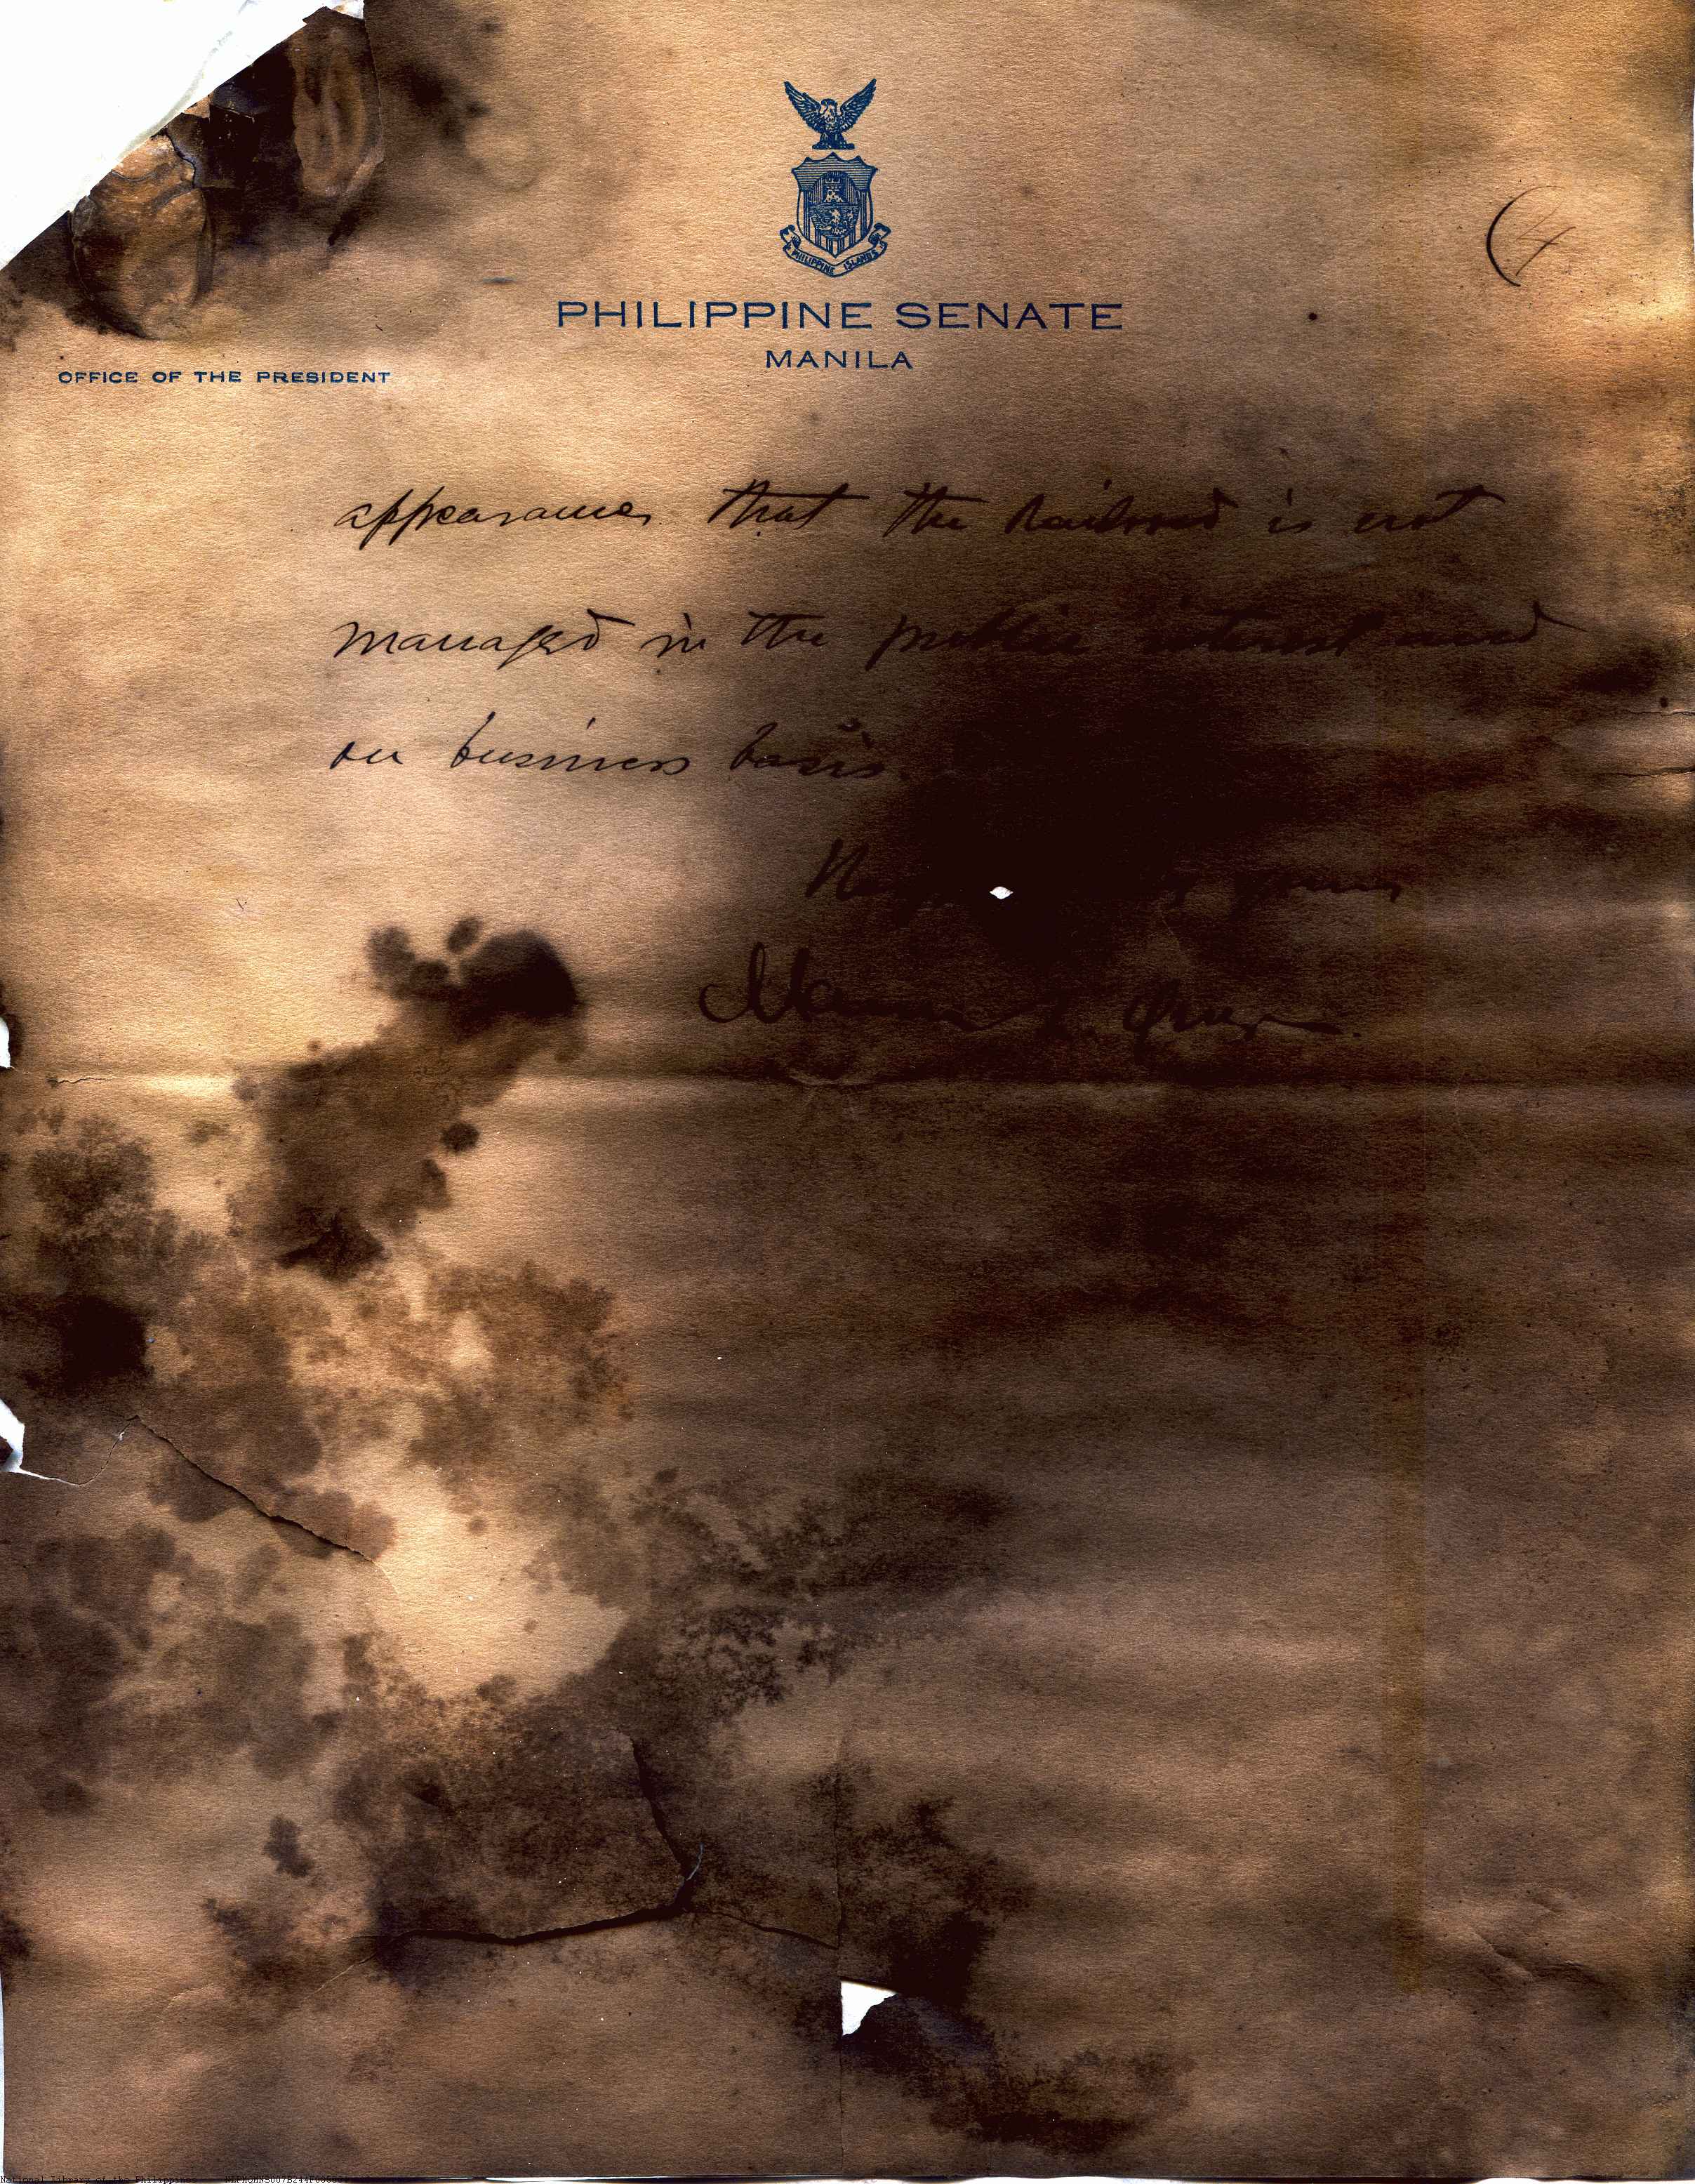 PHILIPPINE ISLANDS
(4
PHILIPPINE SENATE
MANILA
OFFICE OF THE PRESIDENT
appearance, that the railroad is not
managed in the public interest and
on business basis.
yours,
Manuel L. Quezon.
National Library of the Philippines